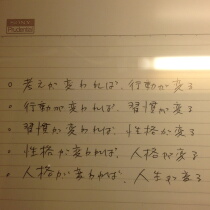 Prudential
○ 考えが変われば、行動が変る
○ 行動が変われば、習慣が変る
○ 習慣が変われば、性格が変る
○ 性格が変われば、人格が変る
○ 人格が変われば、人生が変る